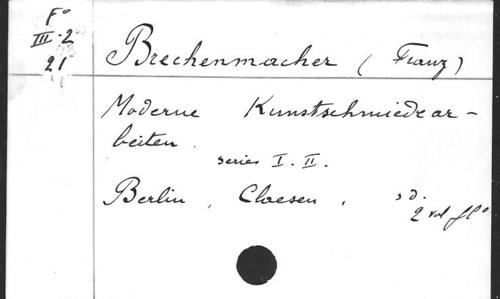 Fº
III-2
21
Brechenmacher (Franz)
Moderne Kunstschmiedear-
beiten.
series I. II.
Berlin, Claesen, s d.
2 vol fº